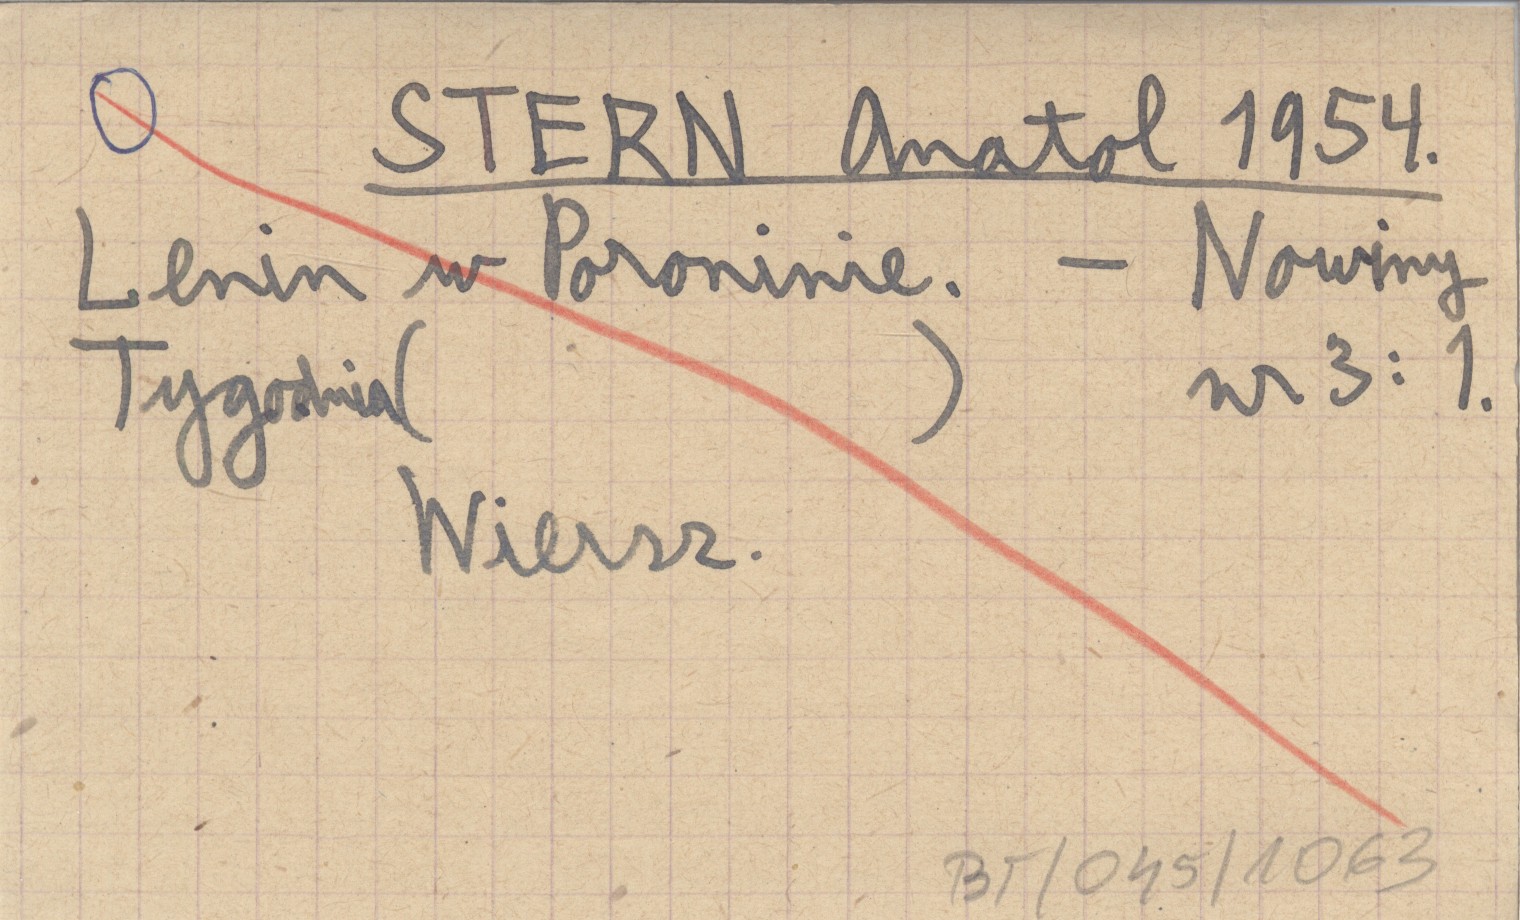 STERN Anatol 1954.
Lenin w Poroninie. – Nowiny
Tygodnia ( ) nr 3: 1.
Wiersz.
BT/045/1063